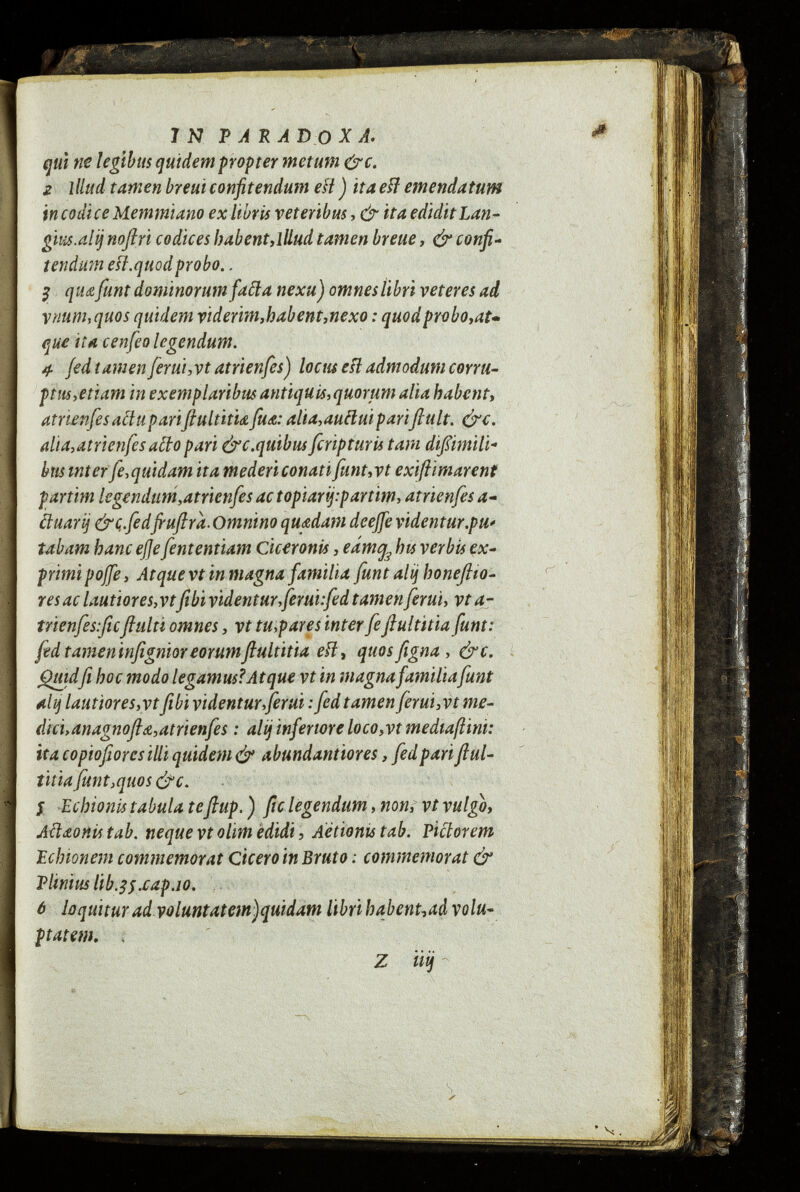 IN PARADOXA.
qui ne legibus quidem propter metum &c.
2 Illud tamen breui confitendum est ) ita est emendatum
in codice Memmiano ex libris veteribus, & ita edidit Lan-
gius.alij nostri codices habent,Illud tamen breue, & confi-
tendum est.quod probo..
3 quæ sunt dominorum facta nexu) omnes libri veteres ad
vnum,quos quidem viderim,habent,nexo: quod probo,at-
que ita censeo legendum.
4 sed tamen serui,vt atrienses) locus est admodum corru-
ptus,etiam in exemplaribus antiquis,quorum alia habent,
atrienses actu pari stultitiæ suæ: alia,auctui pari stult. &c.
alia,atrienses acto pari &c.quibus scripturis tam dißimili-
bus inter se,quidam ita mederi conati sunt,vt existimarent
partim legendum,atrienses ac topiarij:partim, atrienses a-
ctuarij &c.sed frustrà.Omnino quædam deesse videntur.pu-
tabam hanc esse sententiam Ciceronis, eámq; his verbis ex-
primi posse, Atque vt in magna familia sunt alij honestio-
res ac lautiores,vt sibi videntur,serui:sed tamen serui, vt a-
trienses:sic stulti omnes, vt tu,pares inter se stultitia sunt:
sed tamen insignior eorum stultitia est, quos signa, &c.
Quid si hoc modo legamus? Atque vt in magna familia sunt
alij lautiores,vt sibi videntur,serui: sed tamen serui,vt me-
dici,anagnostæ,atrienses: alij inferiore loco,vt mediastini:
ita copiosiores illi quidem & abundantiores, sed pari stul-
titia sunt,quos &c.
5 Echionis tabula te stup.) sic legendum, non, vt vulgò,
Actæonis tab. neque vt olim edidi, Aëtionis tab. Pictorem
Echionem commemorat Cicero in Bruto: commemorat &
Plinius lib.35.cap.10.
6 loquitur ad voluntatem)quidam libri habent,ad volu-
ptatem.
Z iiij